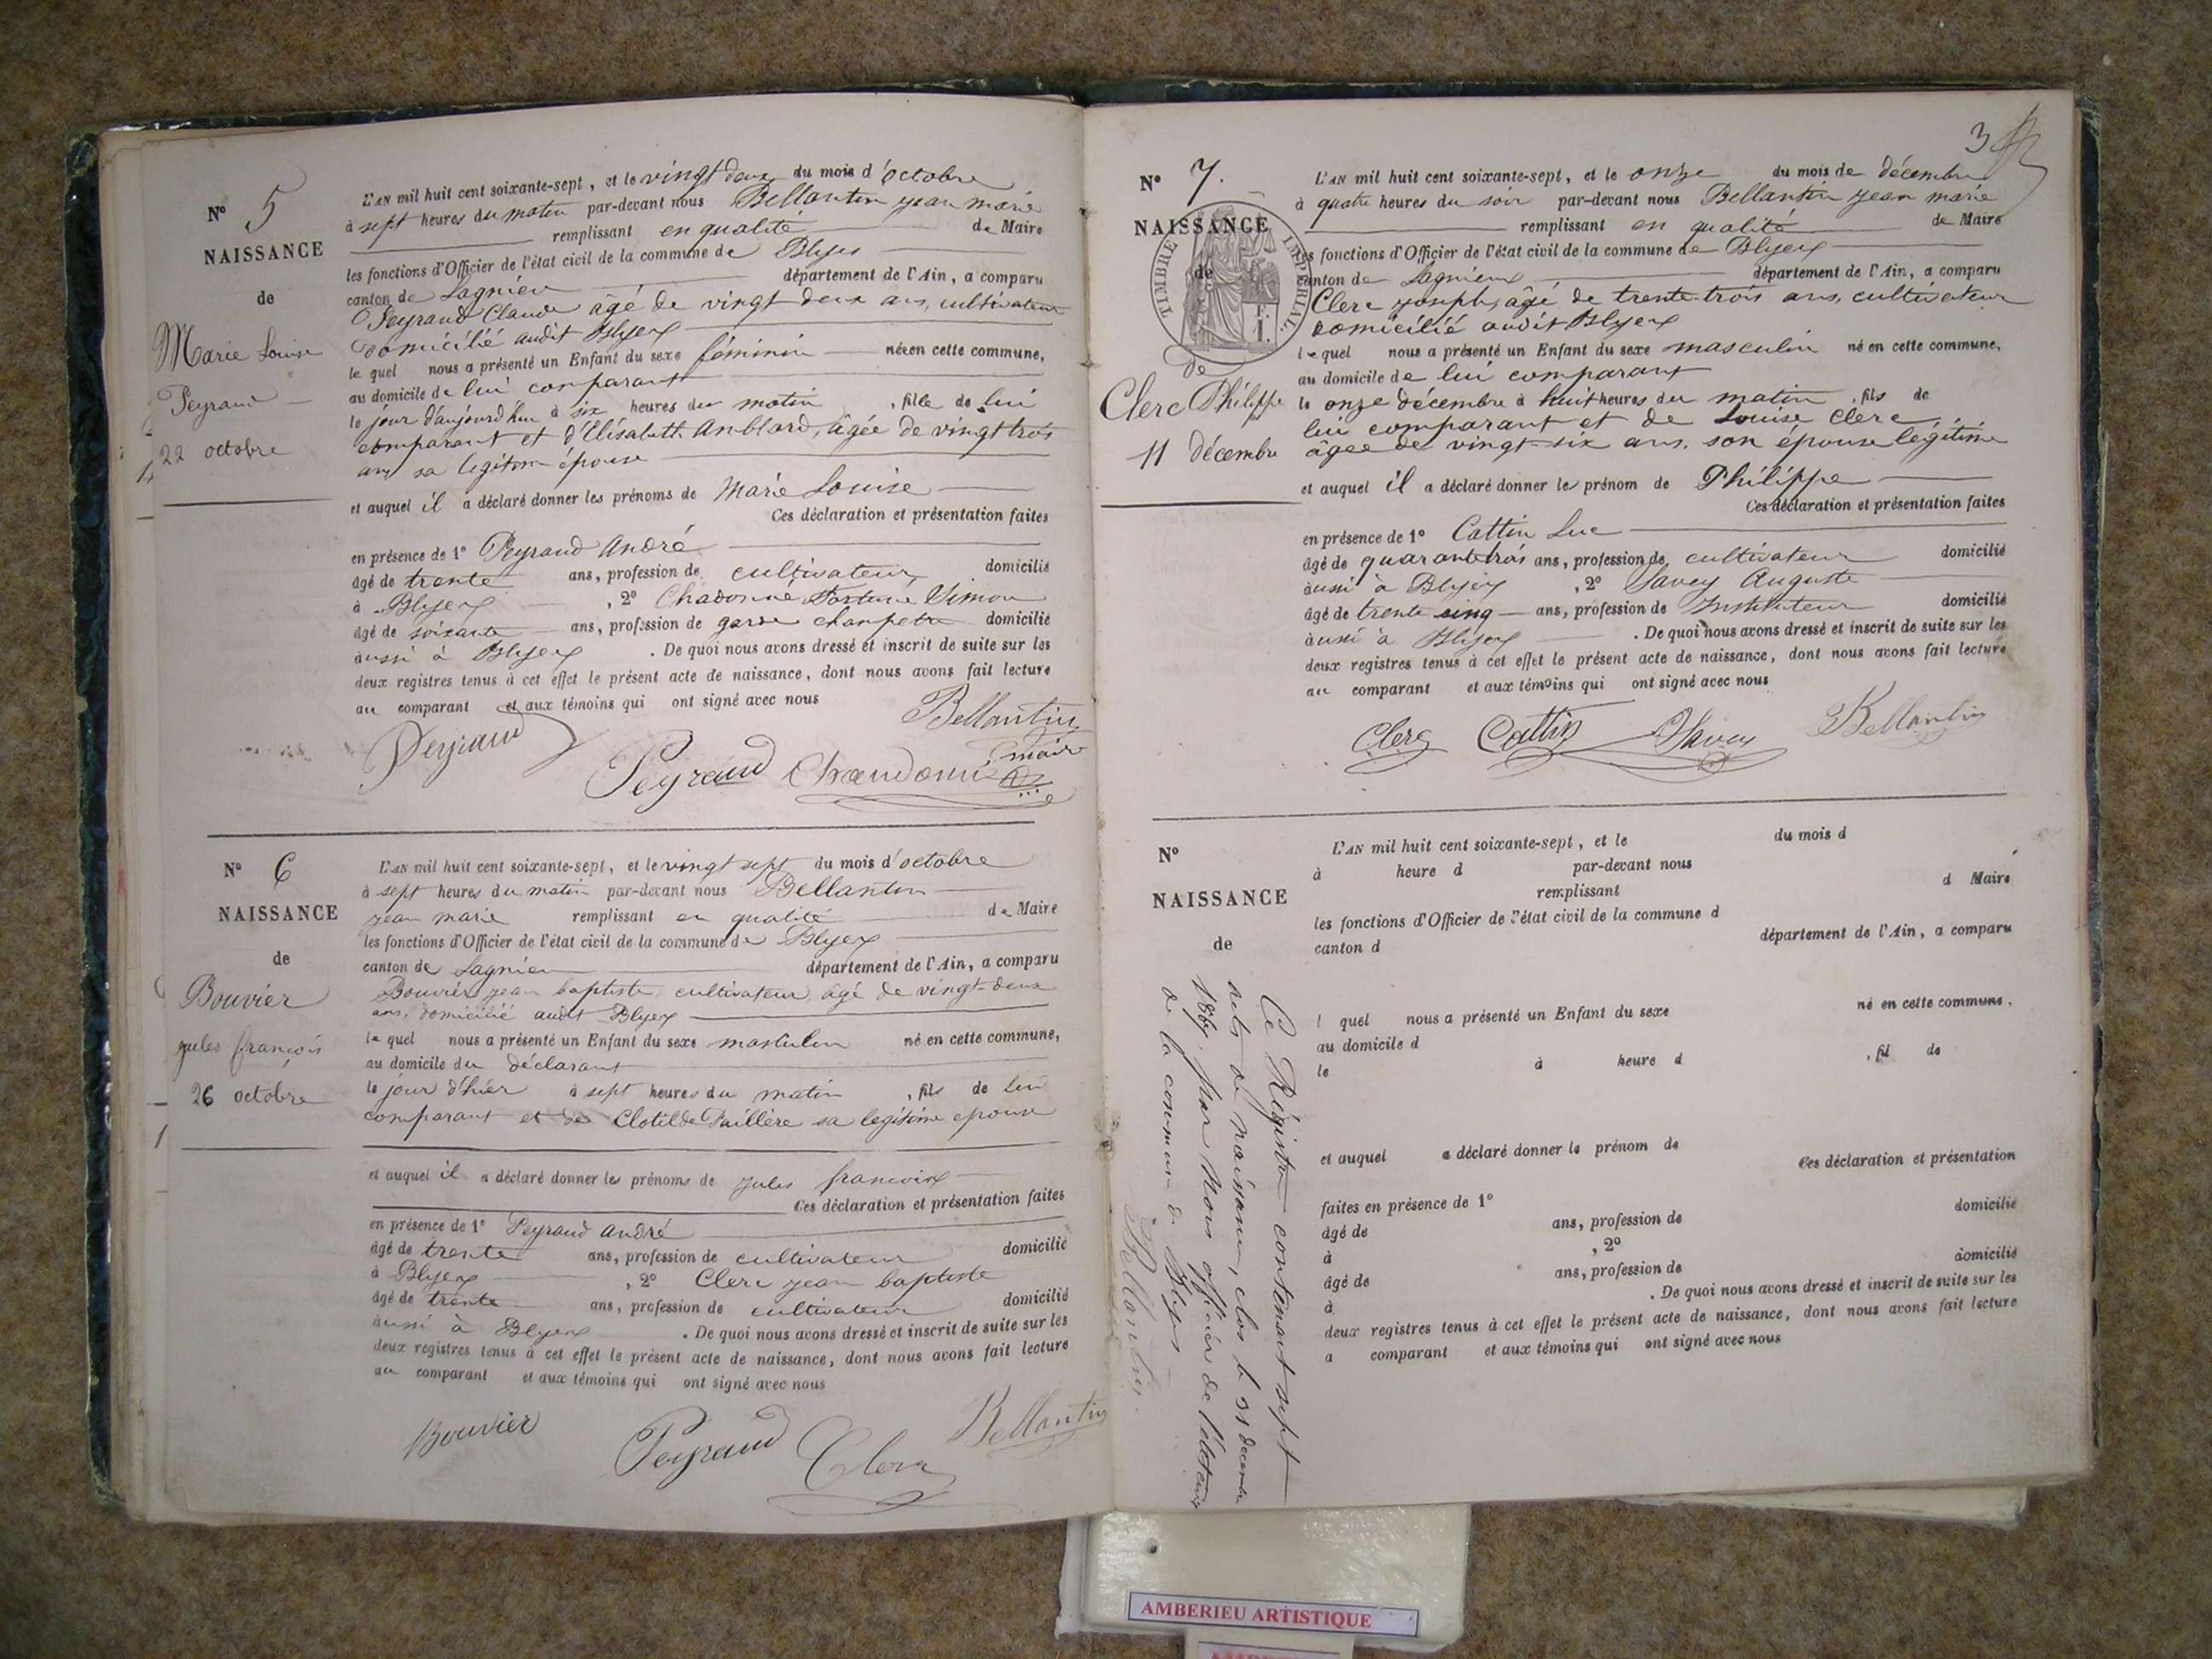 N° 5
NAISSANCE
de
Marie Louise
Peyraud
22 octobre
L'AN mil huit cent soixante-sept, et le vingt deux du mois d'octobre
à sept heures du matin par-devant nous Bellantin jean marie
remplissant en qualité de Maire
les fonctions d'Officier de l'état civil de la commune de Blyes
canton de Lagnieu département de l'Ain, a comparu
Peyraud Claude âgé de vingt deux ans, cultivateur
domicilié audit Blyes
le quel nous a présenté un Enfant du sexe féminin née en cette commune,
au domicile de lui comparant
le jour d'aujourd'hui à six heures du matin, fille de lui
comparant et d'Elisabeth Amblard, âgée de vingt trois
ans sa legitime épouse
et auquel il a déclaré donner les prénoms de Marie Louise
Ces déclaration et présentation faites
en présence de 1° Peyraud André
âgé de trente ans, profession de cultivateur domicilié
à Blyes, 2° Simon
âgé de soixante ans, profession de garde champetre domicilié
aussi à Blyes. De quoi nous avons dressé et inscrit de suite sur les
deux registres tenus à cet effet le présent acte de naissance, dont nous avons fait lecture
au comparant et aux témoins qui ont signé avec nous
Bellantin
maire
Peyraud
Peyraud
N° 6
NAISSANCE
de
Bouvier
jules françois
26 octobre
L'AN mil huit cent soixante-sept, et le vingt sept du mois d'octobre
à sept heures du matin par-devant nous Bellantin
jean marie remplissant en qualité de Maire
les fonctions d'Officier de l'état civil de la commune de Blyes
canton de Lagnieu département de l'Ain, a comparu
Bouvier jean baptiste, cultivateur, âgé de vingt-deux
ans, domicilié audit Blyes
le quel nous a présenté un Enfant du sexe masculin né en cette commune,
au domicile du déclarant
le jour d'hier à sept heures du matin, fils de lui
comparant et de Clotilde Paillère sa legitime epouse
et auquel il a déclaré donner les prénoms de jules francois
Ces déclaration et présentation faites
en présence de 1° Peyraud André
âgé de trente ans, profession de cultivateur domicilié
à Blyes, 2° Clerc jean baptiste
âgé de trente ans, profession de cultivateur domicilié
aussi à Blyes. De quoi nous avons dressé et inscrit de suite sur les
deux registres tenus à cet effet le présent acte de naissance, dont nous avons fait lecture
au comparant et aux témoins qui ont signé avec nous
Bouvier Peyraud Clerc Bellantin
3
N° 7.
NAISSANCE
de
TIMBRE IMPERIAL
de
Clerc Philippe
11 décembre
L'AN mil huit cent soixante-sept, et le onze du mois de décembre
à quatre heures du soir par-devant nous Bellantin jean marie
remplissant en qualité de Maire
les fonctions d'Officier de l'état civil de la commune de Blyes
canton de Lagnieu département de l'Ain, a comparu
Clerc joseph, âgé de trente trois ans, cultivateur
domicilié audit Blyes
le quel nous a présenté un Enfant du sexe masculin né en cette commune,
au domicile de lui comparant
le onze décembre à huit heures du matin, fils de
lui comparant et de Louise Clerc,
âgée de vingt-six ans, son épouse légitime
et auquel il a déclaré donner le prénom de Philippe
Ces déclaration et présentation faites
en présence de 1° Cattin Luc
âgé de quarante trois ans, profession de cultivateur domicilié
aussi à Blyes, 2° Savey Auguste
âgé de trente cinq ans, profession de Instituteur domicilié
aussi à Blyes. De quoi nous avons dressé et inscrit de suite sur les
deux registres tenus à cet effet le présent acte de naissance, dont nous avons fait lecture
au comparant et aux témoins qui ont signé avec nous
Clerc Cattin Savey Bellantin
N°
NAISSANCE
de
L'AN mil huit cent soixante-sept, et le du mois d
à heure d par-devant nous
remplissant d Maire
les fonctions d'Officier de l'état civil de la commune d
canton d département de l'Ain, a comparu
l quel nous a présenté un Enfant du sexe né en cette commune.
au domicile d
le à heure d, fil de
et auquel a déclaré donner le prénom de
Ces déclaration et présentation
faites en présence de 1°
âgé de ans, profession de domicilié
à, 2°
âgé de ans, profession de domicilié
à. De quoi nous avons dressé et inscrit de suite sur les
deux registres tenus à cet effet le présent acte de naissance, dont nous avons fait lecture
a comparant et aux témoins qui ont signé avec nous
Ce Régistre contenant sept
acts de naissance, clos le 31 decembre
1867, par Nous officier de l'état civil
de la commune de Blyes
Bellantin
AMBERIEU ARTISTIQUE